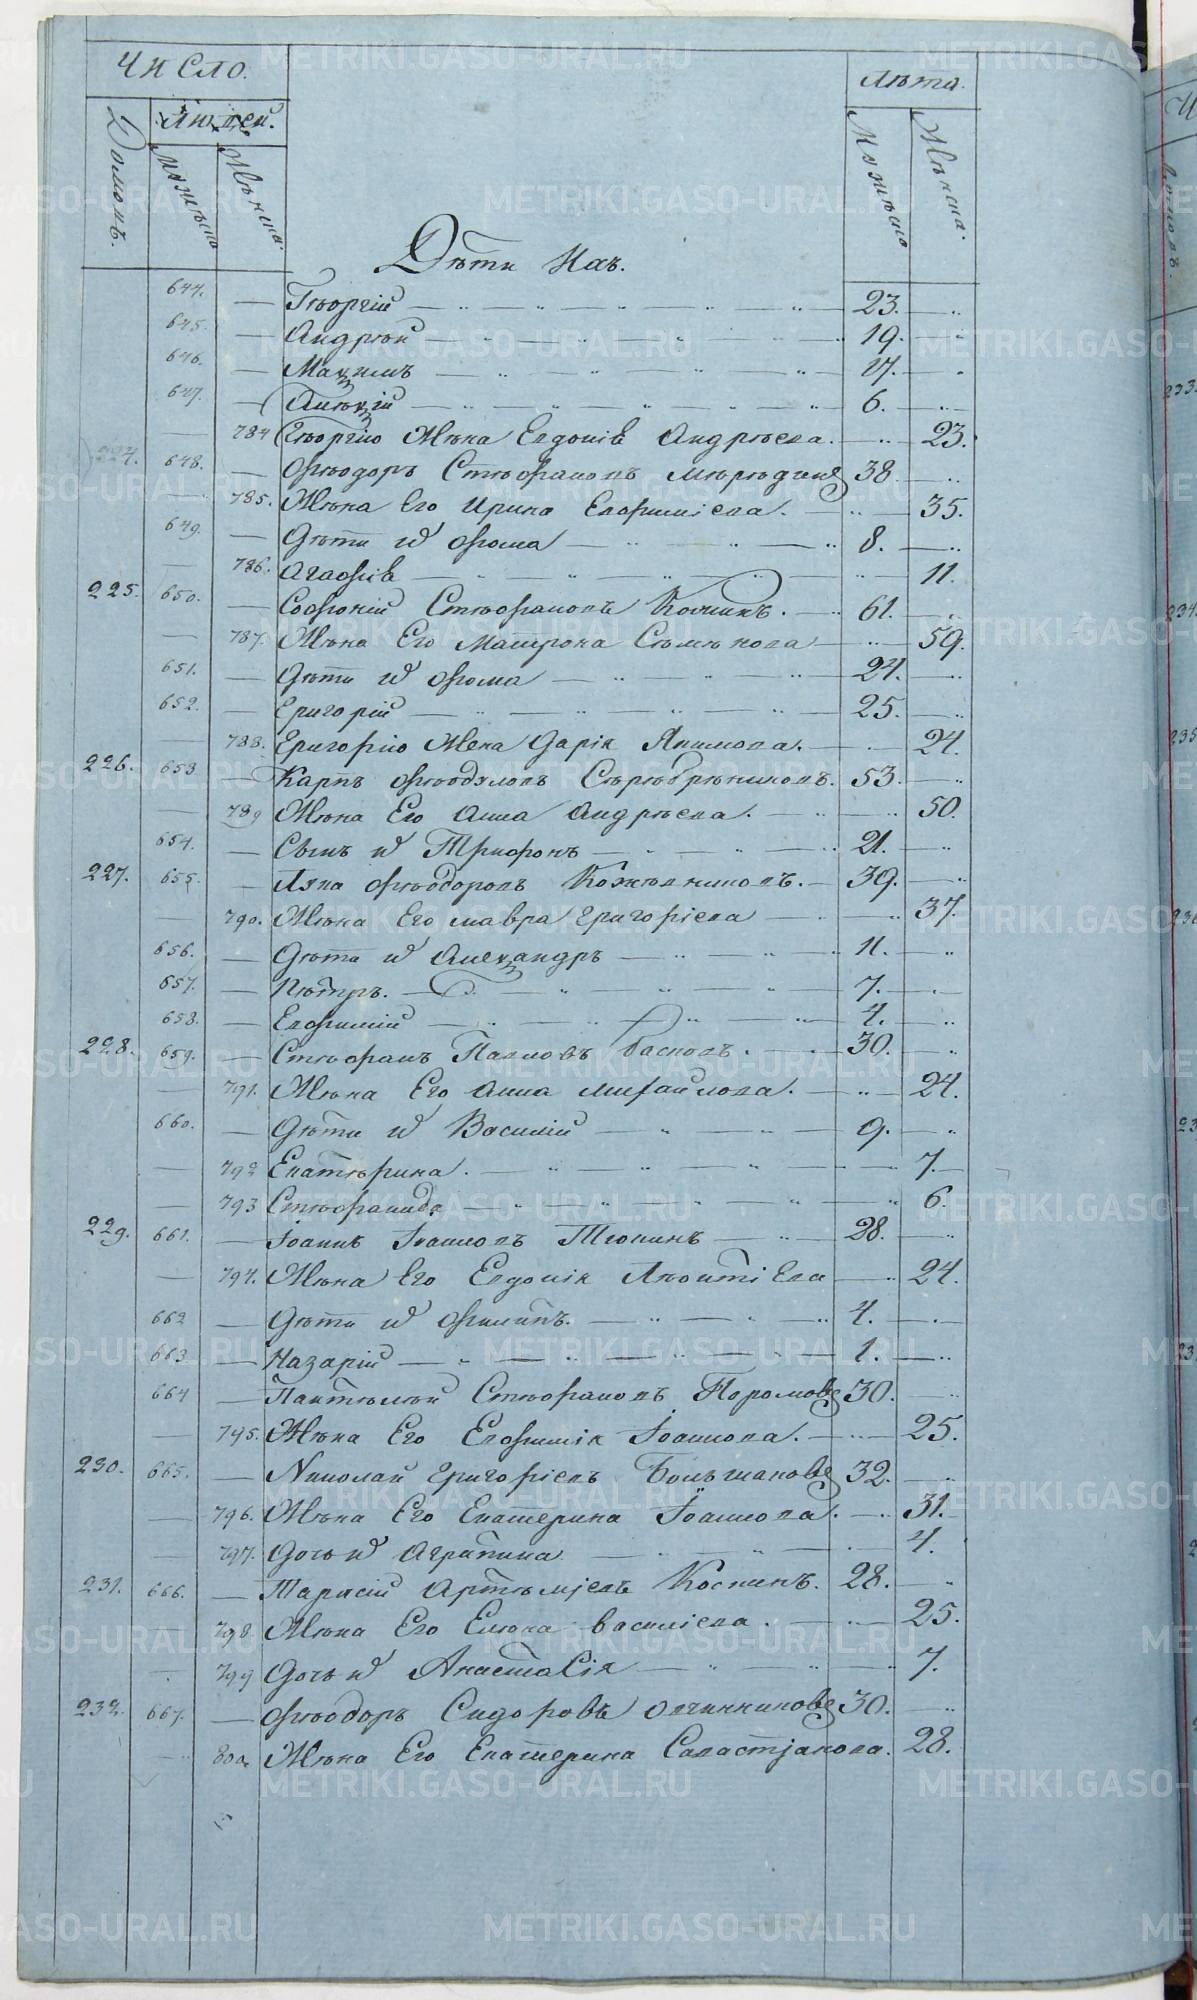 Число.
Лѣта.
Людей.
Домовъ.
Мужеско
Женска.
Мужеско
Женска.
Дѣти ихъ.
644. — Георгій 23.
645. — Андрей 19.
646. — Мазимъ 17.
647. — Алексій 6.
784 Георгію Жена Евдокія Андреева. 23.
224. 648. — Феодоръ Стефановъ 38
785. Жена Его Ирина Евфиміева. 35.
649. — Дети их Фома 8.
786. Агафія 11.
225. 650. — Софоній Стефановъ 61.
787. Жена Его Матрона Семенова 59.
651. — Дети их Фома 24.
652. — Григорій 25.
788. Григорію Жена Дарія Якимова. 24.
226. 653 — Карпъ Феодуловъ Серебрениковъ. 53.
789 Жена Его Анна Андреева. 50.
654. — Сынъ их Трифонъ 21.
227. 655. — Лука Феодоровъ Кожевниковъ. 39.
790. Жена Его мавра Григоріева 37.
656. — Дети их Александръ 11.
657. — Петръ. 7.
658. — Евфимій 4.
228. 659. — Стефанъ Павловъ Басковъ. 30.
791. Жена Его Анна михайлова. 24.
660. — Дети их Василій 9.
792 Екатерина. 7.
793 Стефанида 6.
229. 661. — Іоаннъ Іоанновъ Тюпинъ 28.
794. Жена Его Евдокія Леонтіева 24.
662 — Дети их Филипъ. 4.
663 — Назарій 1.
664 — Пантелей Стефановъ 30.
795. Жена Его Евфимія Іоаннова. 25.
230. 665. — Николай Григоріевъ Большаковъ 32.
796. Жена Его Екатерина Іоаннова. 31.
797. Дочь их Аграпина 4.
231. 666. — Тарасій Артемьевъ Коскинъ. 28.
798 Жена Его Елена василіева. 25.
799 Дочь их Анастасія 7.
232. 667. — Феодоръ Сидоровъ Овчинниковъ 30.
800. Жена Его Екатерина Савастьянова. 28.
METRIKI.GASO-URAL.RU